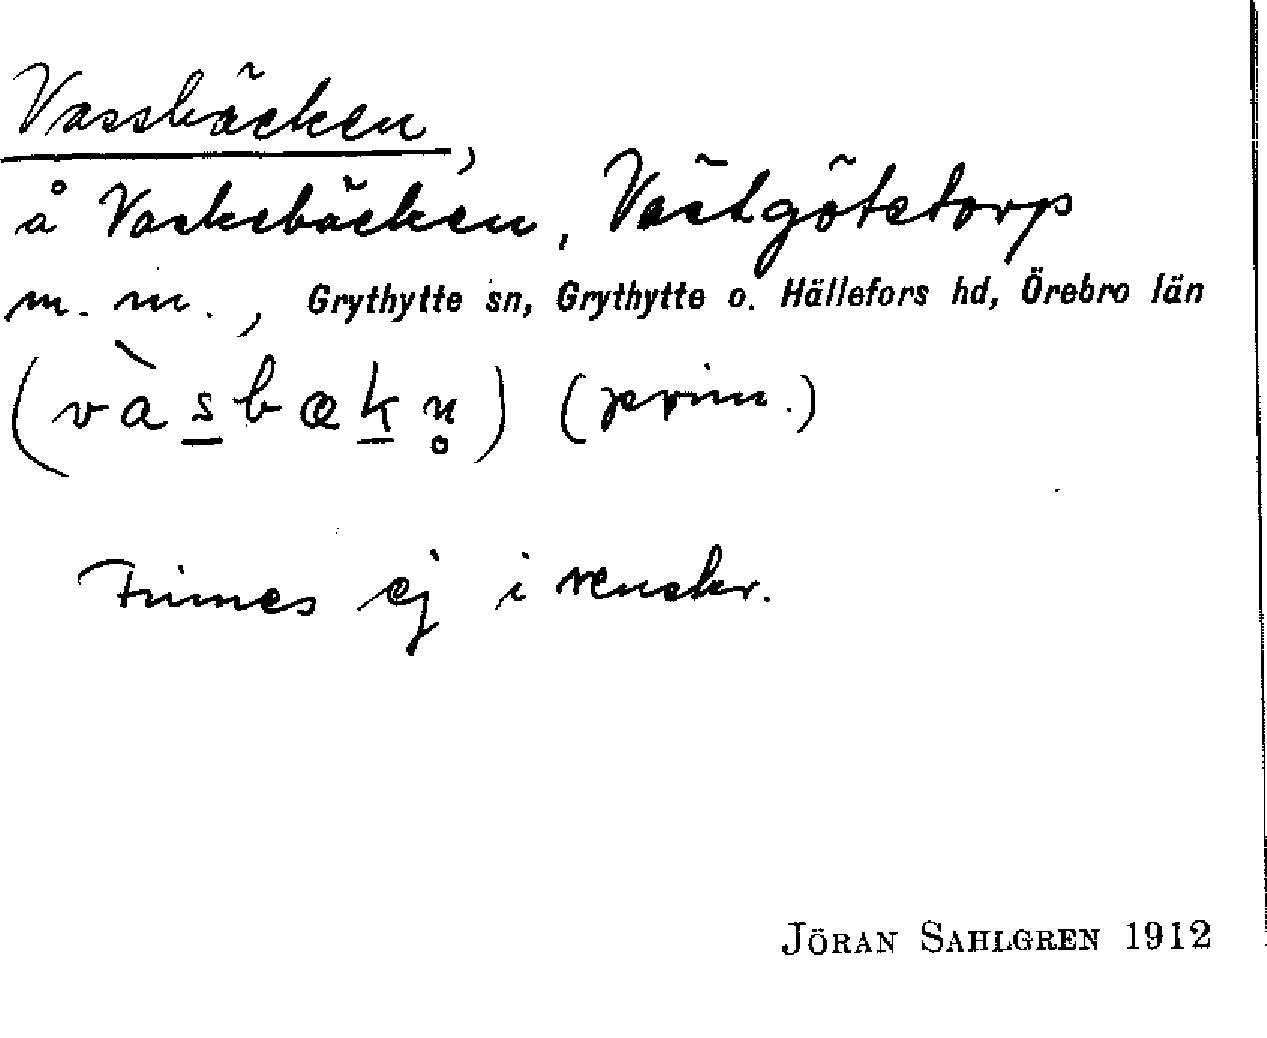 Vassbäcken,
å Vasksbäcken, Västgötetorp
m. m., Grythytte sn, Grythytte o. Hällefors hd, Örebro län
(vàsbækn̥) (prim.)
Finnes ej i renskr.
JÖRAN SAHLGREN 1912